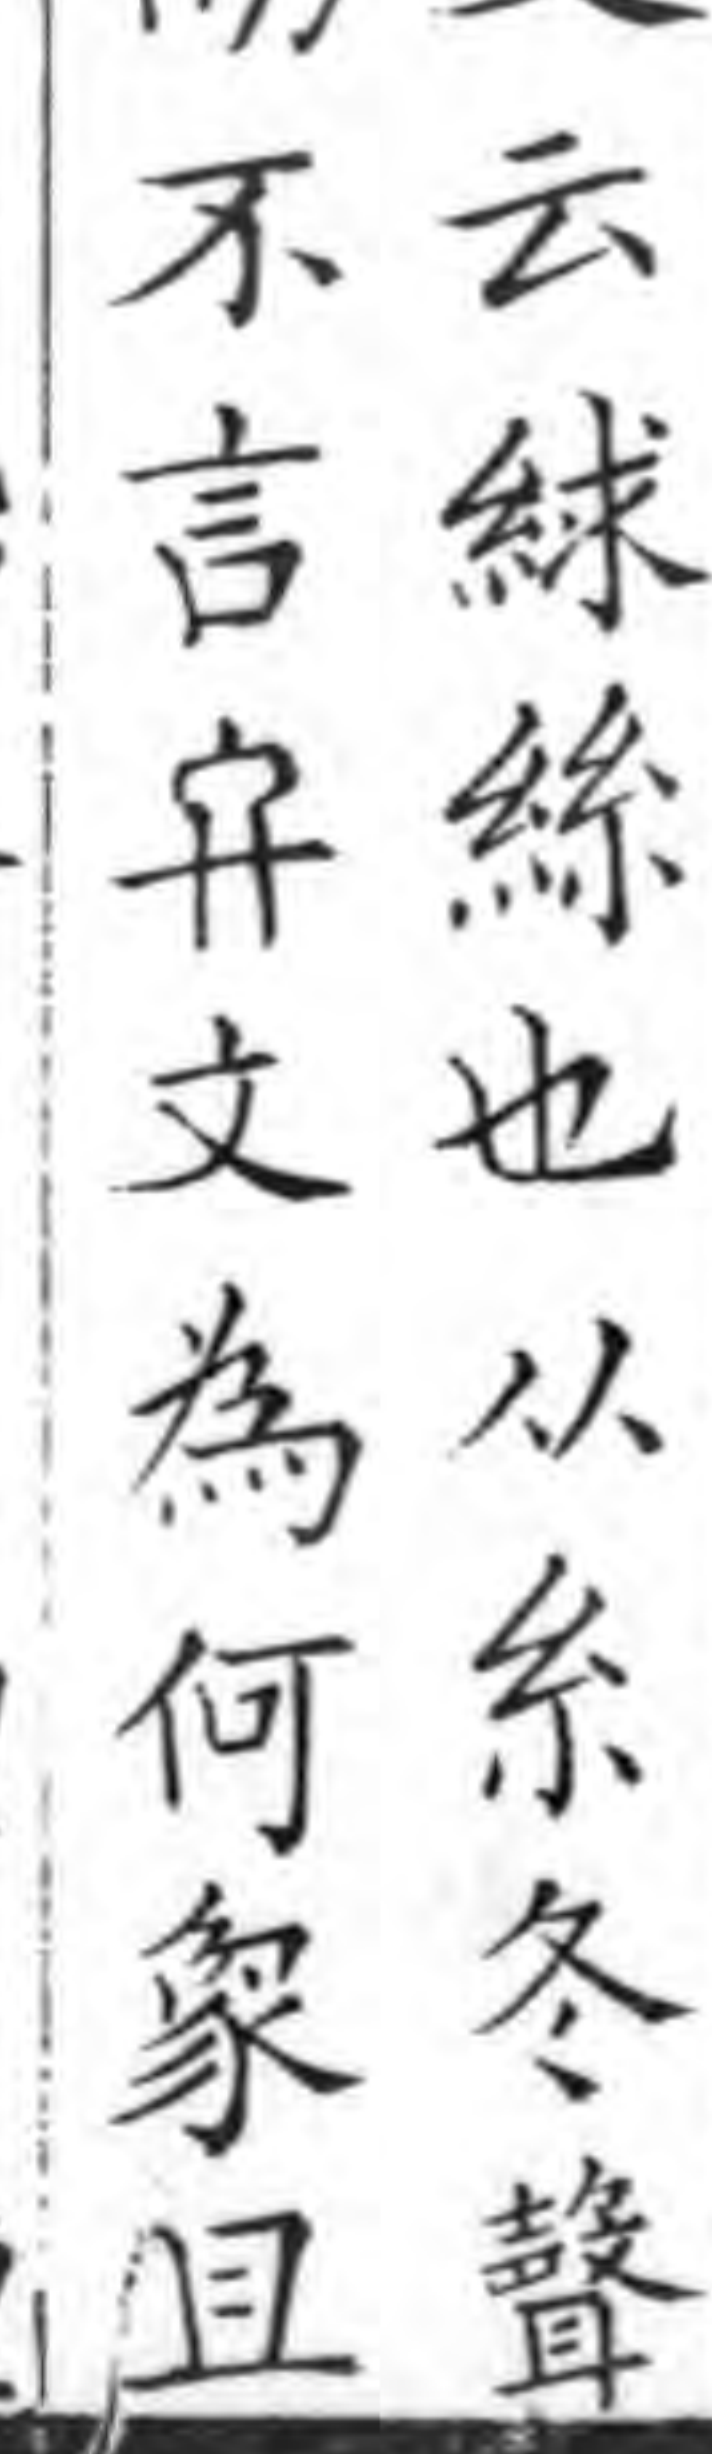 云絿絲也从糸冬聲
不言𠔁文為何象且